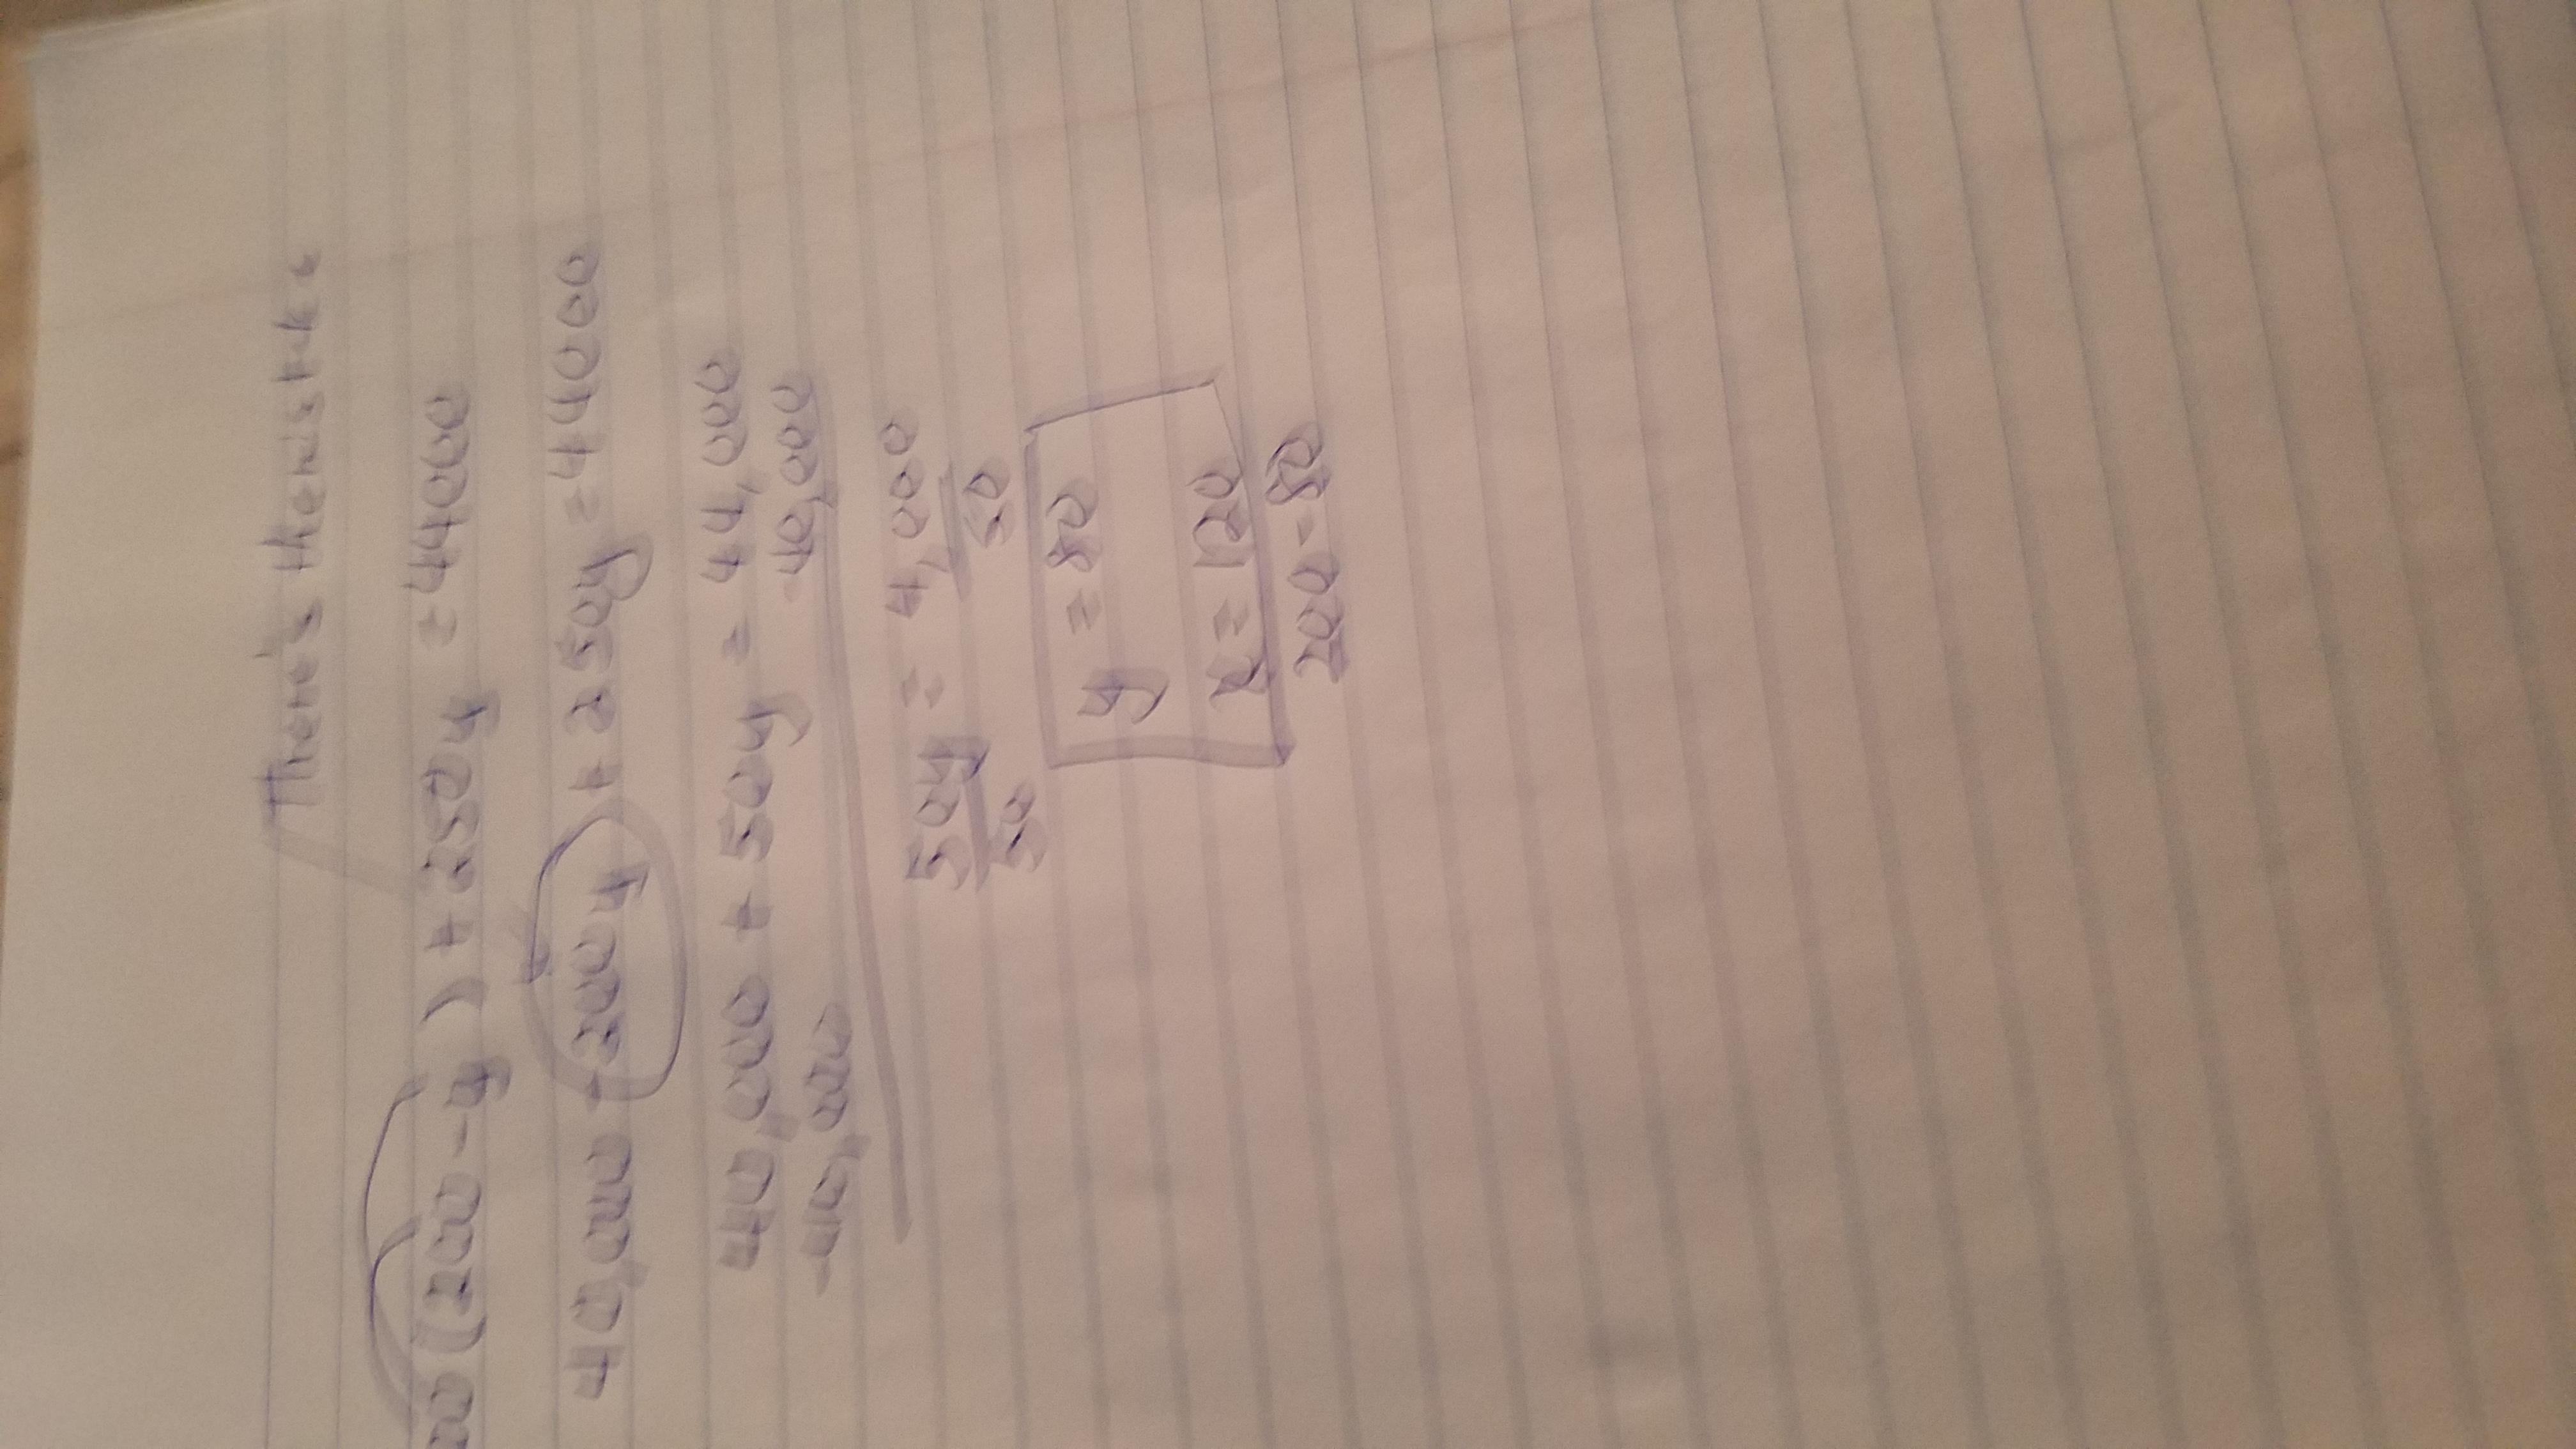 There's the mistake
00 (200 - y) + 250y = 44000
40,000 - 200y + 250y = 44000
40,000 + 50y = 44,000
-40,000 -40,000
50y = 4,000
50 50
y = 80
x = 120
200 - 80